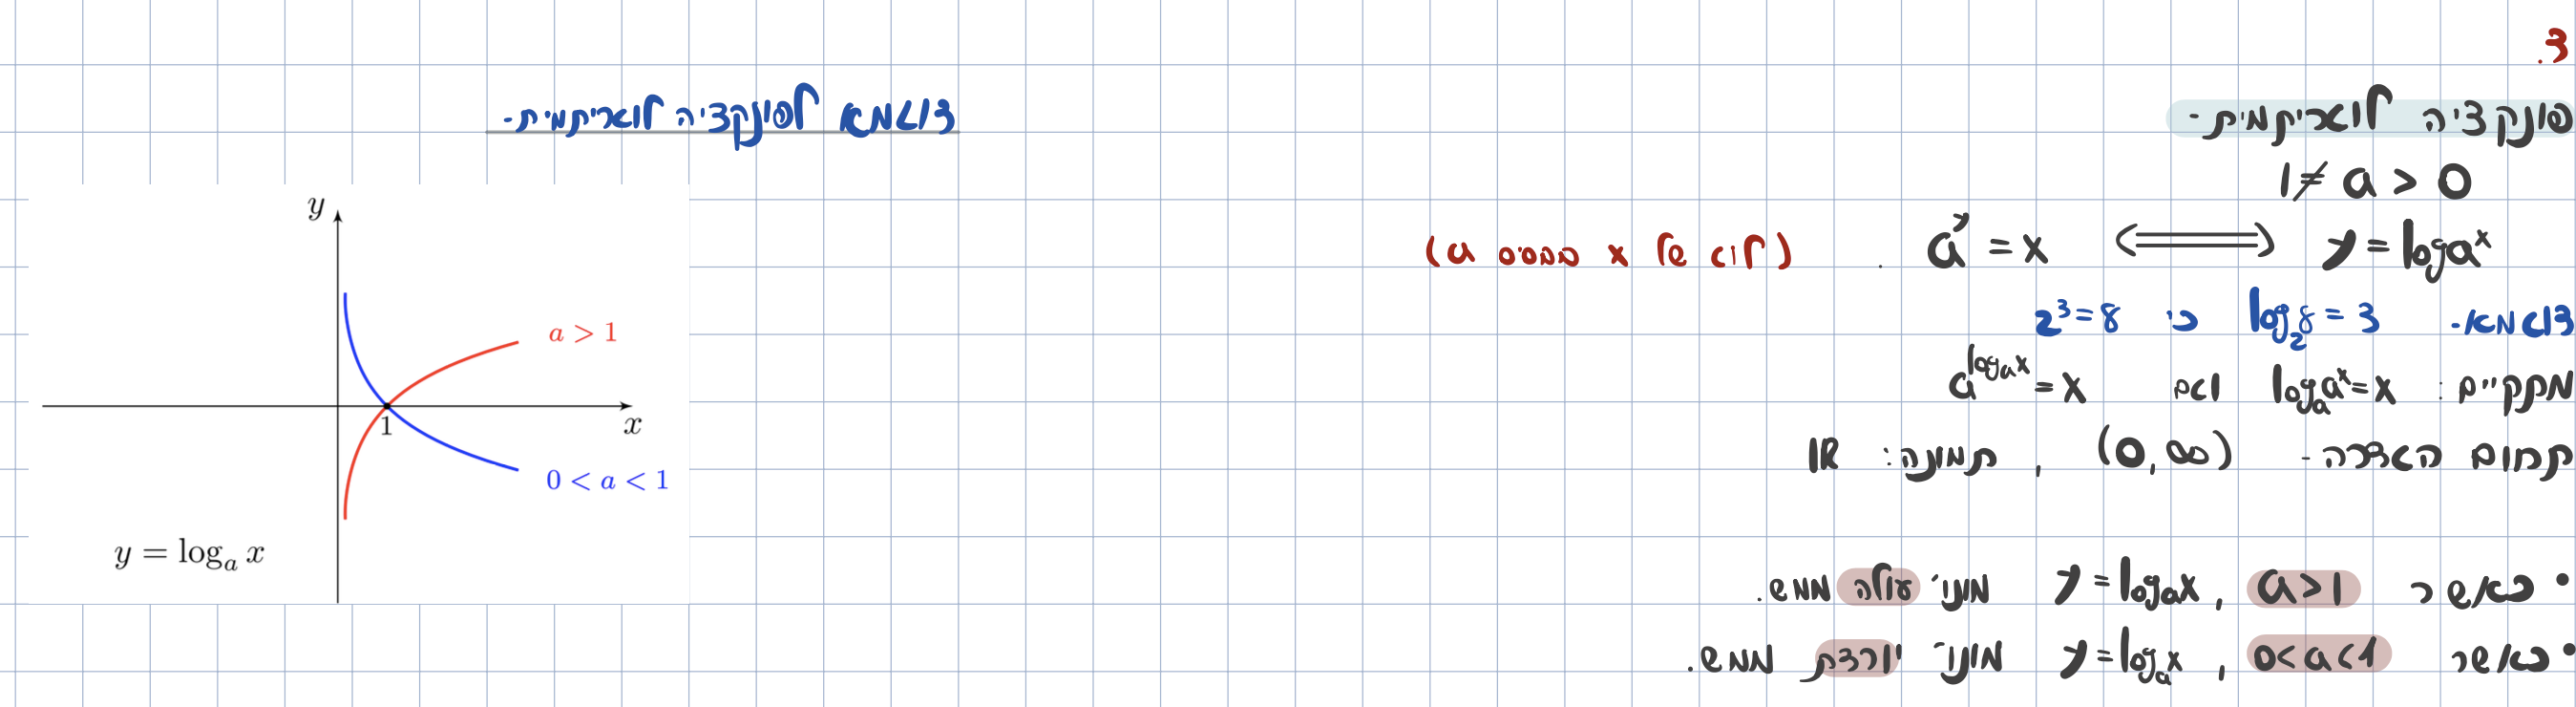 3.
פונקציה לוגריתמית-
1 ≠ a > 0
y = logaˣ ⟺ aʸ = x . (לוג של x בבסיס a)
דוגמא- log₂8 = 3 כי 2³=8
מתקיים: logₐaˣ = x וגם a^(logₐx) = x
תחום הגדרה- (0,∞) , תמונה: ℝ
• כאשר a>1 , y = logₐx מונו' עולה ממש.
• כאשר 0<a<1 , y = logₐx מונו' יורדת ממש.
דוגמא לפונקציה לוגריתמית-
y
a > 1
1
x
0 < a < 1
y = logₐ x